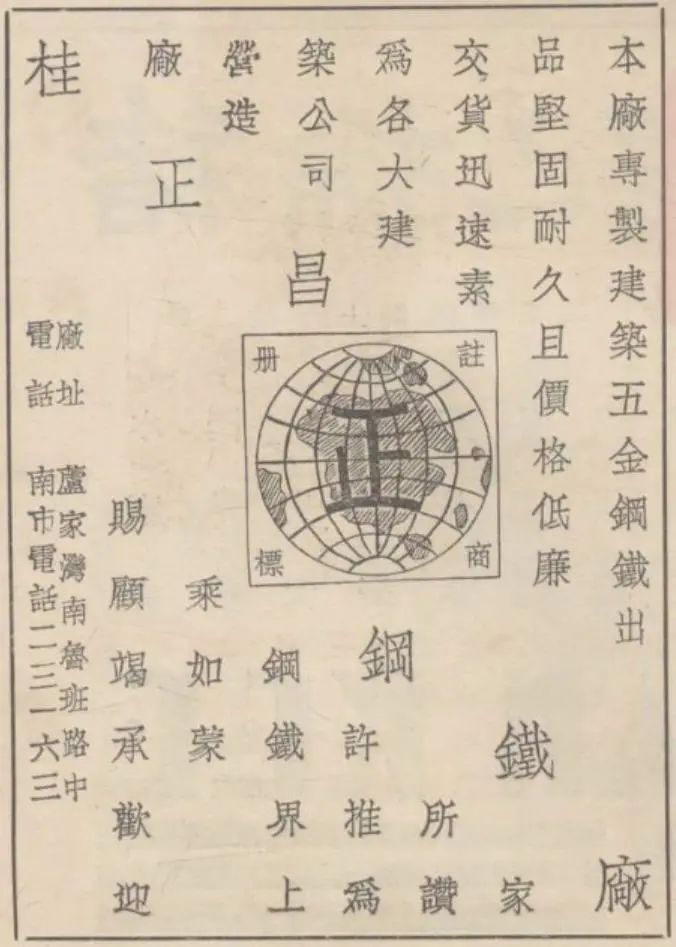 桂正昌鋼鐵廠
本廠專製建築五金鋼鐵出
品堅固耐久且價格低廉
交貨迅速素
爲各大建
築公司
營造
廠
家
所讚
許推爲
鋼鐵界上
乘如蒙
賜顧竭承歡迎
註册商標
正
廠址 蘆家灣南魯班路中
電話 南市電話二三一六三